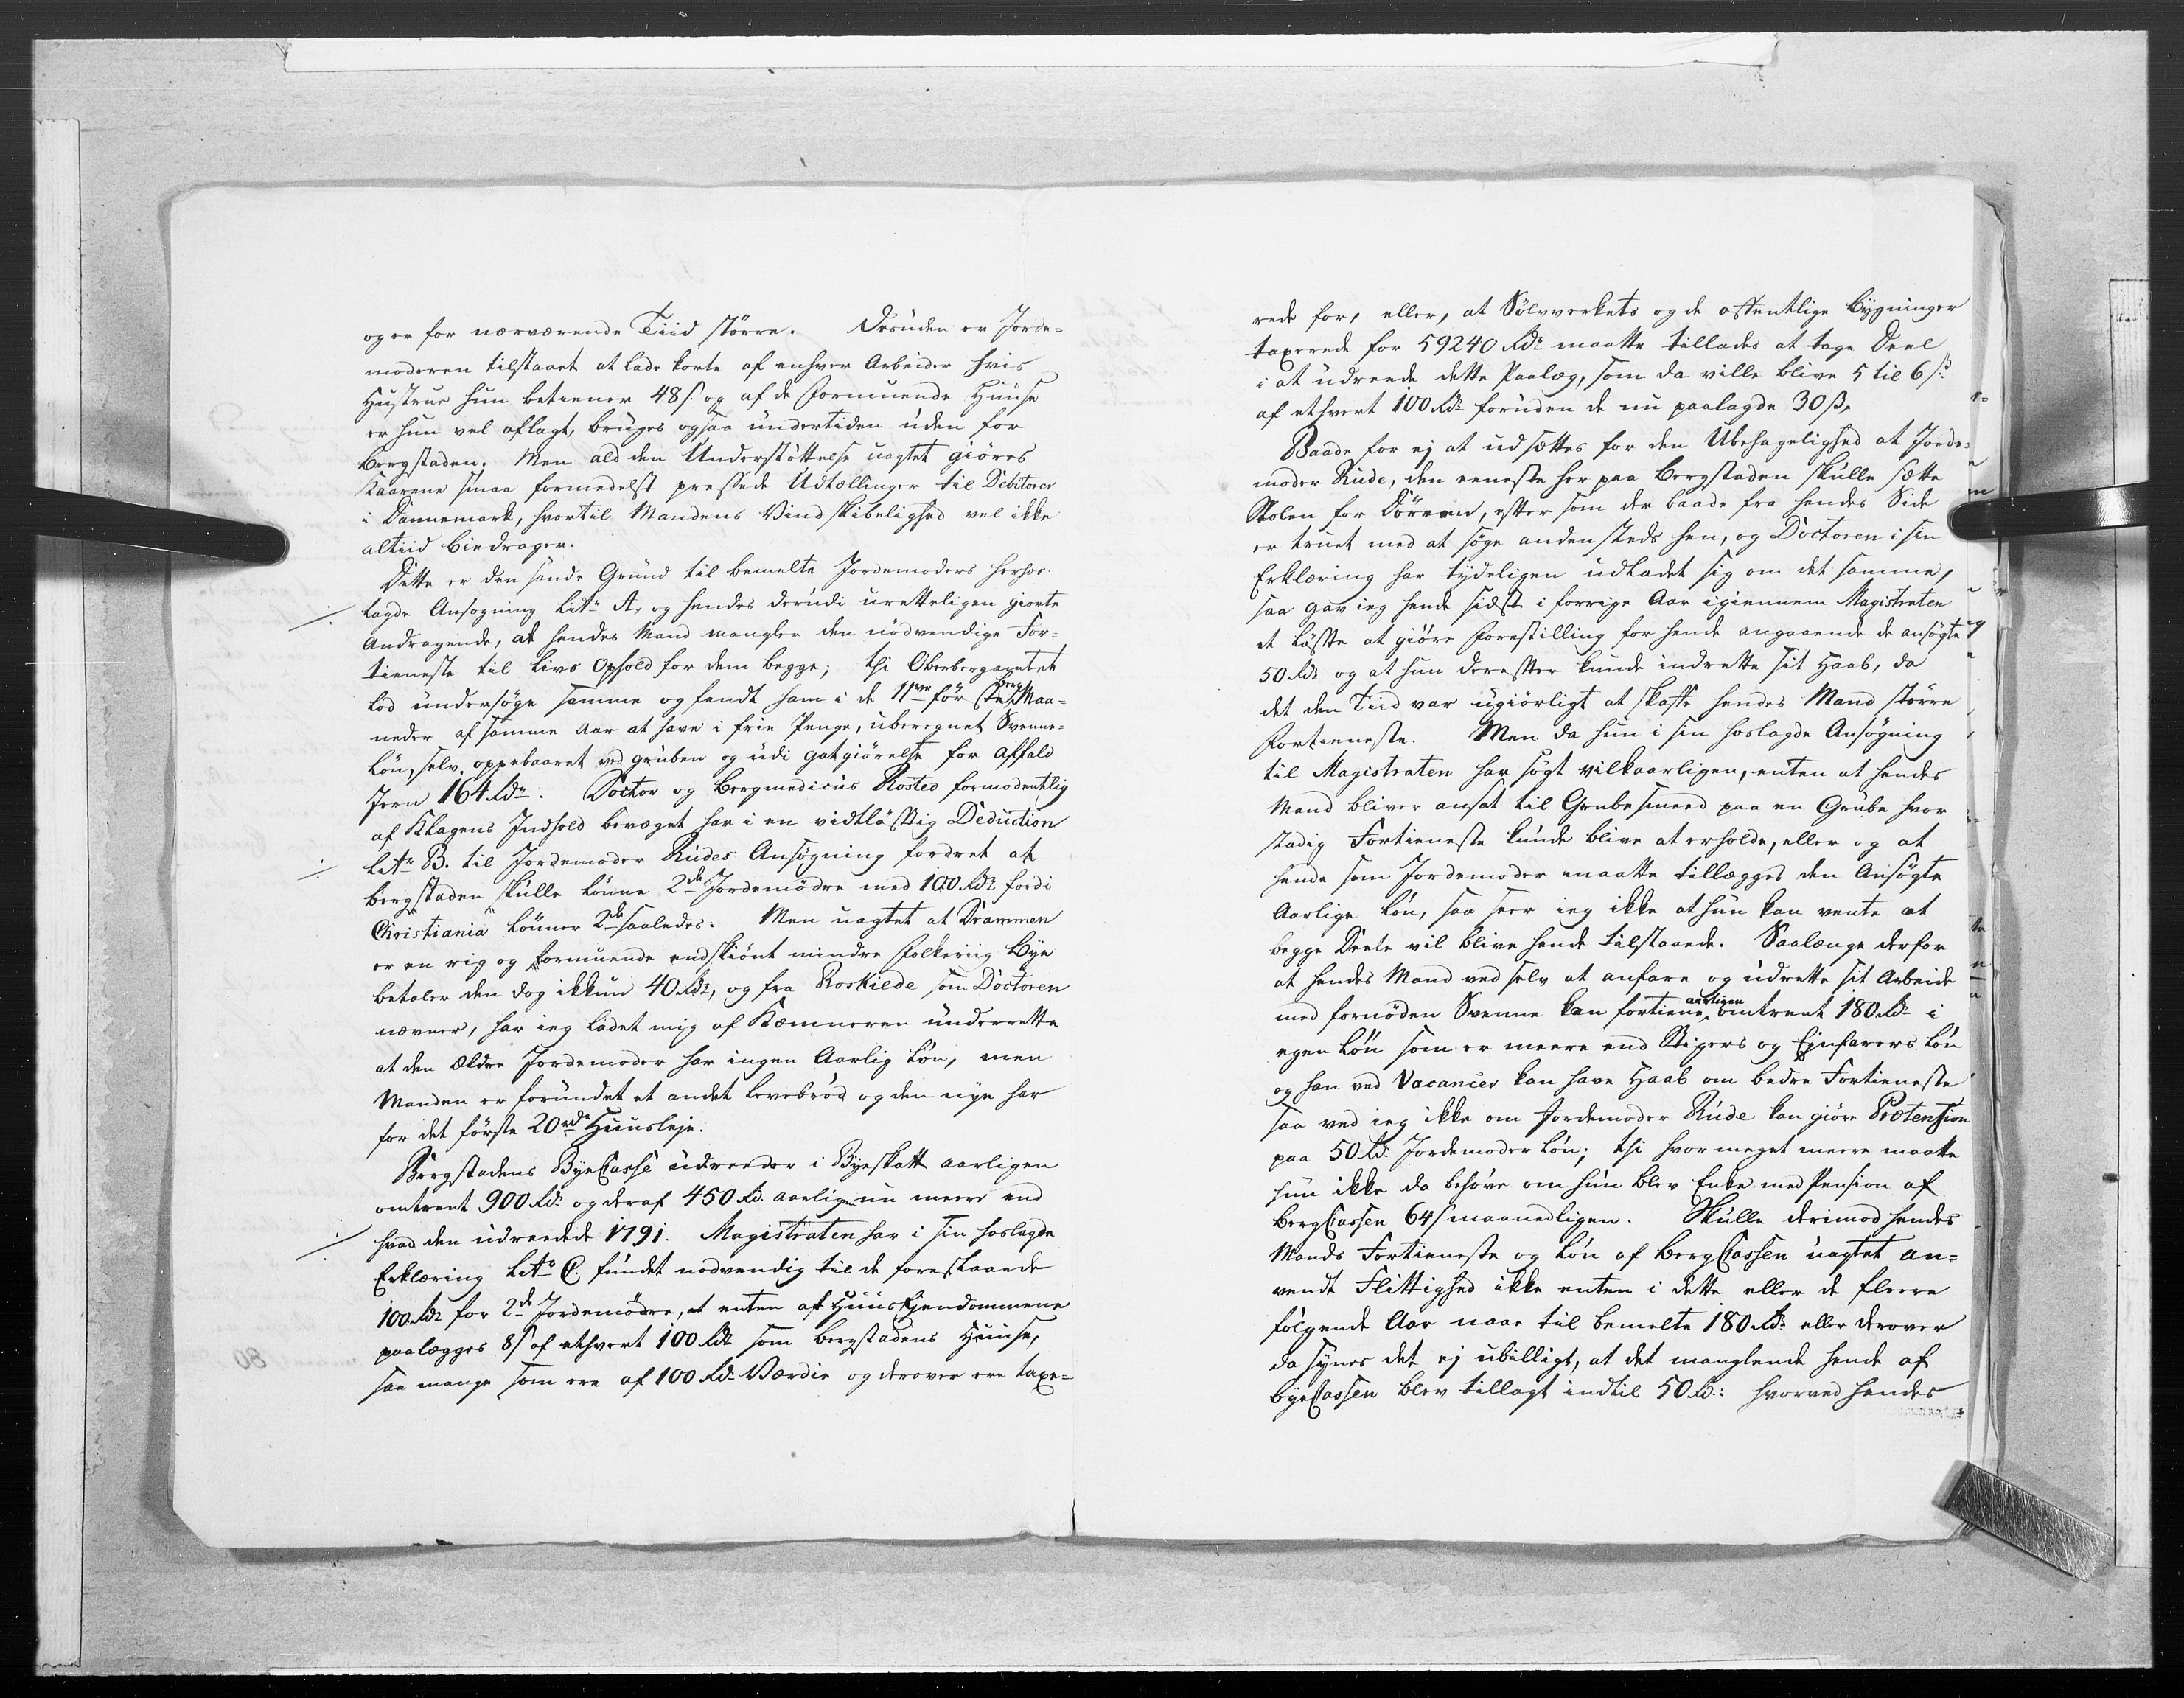 og er for nærværende Tiid større. Desuden er Jorde-
moderen tilstaaet at lade korte af enhver Arbeider hvis
Hustrue hun betiener 48 s. og af de formuende Huuse
er hun vel aflagt, bruges ogsaa undertiden uden for
Bergstaden. Men ald den Understøttelse uagtet giøres
Kaarene smaa formedelst pressede Udtællinger til Debitorer
i Dannemark, hvortil Mandens Vindskibelighed vel ikke
altiid bidrager.
Dette er den sande Grund til bemelte Jordemoders herhos
lagde Ansøgning Litr A, og hendes derudi uretteligen giorte
Andragende, at hendes Mand mangler den nødvendige For-
tieneste til Livs Ophold for dem begge; thi Oberbergamtet
lod undersøge samme og fandt ham i de 11ve før ste Berg Maa-
neder af samme Aar at have i frie Penge, uberegnet Svenne-
Løn, selv oppebaaret ved Gruben og udi Gotgiørelse for affald
Jern 164 Rdr. Doctor og Bergmedicus Rosted formodentlig
af Klagens Indhold bevæget har i en vidtløftig Deduction
Litr B. til Jordemoder Rudes Ansøgning fordret at
Bergstaden skulle lønne 2de Jordemødre med 100 Rdr fordi
Christiania lønner 2de saaledes. Men uagtet at Drammen
er en rig og formuende endskiønt mindre folkeriig Bye
betaler den dog ikkun 40 Rdr, og fra Roskilde som Doctoren
nævner, har ieg ladet mig af Kæmneren underrette
at den ældre Jordemoder har ingen Aarlig Løn, men
Manden er forundet et andet Levebrød og den nye har
for det første 20 rdr Huusleje.
Bergstadens ByeCasse udreeder i Byeskatt aarligen
omtrent 900 Rdr og deraf 450 Rd. aarlig nu meere end
hvad den udreedede 1791. Magistraten har i sin hoslagde
Erklæring Litr C. fundet nødvendig til de forestaaende
100 Rdr for 2de Jordemødre, at enten af Huus Ejendommene
paalægges 8 s af ethvert 100 Rdr som Bergstadens Huuse,
saa mange som ere af 100 Rdr Værdie og derover ere taxe-
rede for, eller, at Sølvverkets og de offentlige Bygninger
taxerede for 59240 Rdr maatte tillades at tage Deel
i at udreede dette Paalæg, som da ville blive 5 til 6 ß
af ethvert 100 Rdr foruden de nu paalagde 30 ß.
Baade for ej at udsættes for den Ubehagelighed at Jorde-
moder Rude, den eeneste her paa Bergstaden skulle sætte
Stolen for Døren, efter som der baade fra hendes Side
er truet med at søge andensteds hen, og Doctoren i sin
Erklæring har tydeligen udladet sig om det samme,
saa gav ieg hende sidst i forrige Aar igiennem Magistraten
et Løfte at giøre Forestilling for hende angaaende de ansøgte
50 Rdr og at hun derefter kunde indrette sit Haab, da
det den Tiid var ugiørligt at skaffe hendes Mand større
Fortieneste. Men da hun i sin hoslagde Ansøgning
til Magistraten har søgt vilkaarligen, enten at hendes
Mand bliver ansat til Grubesmeed paa en Grube hvor
stadig Fortieneste kunde blive at erholde, eller og at
hende som Jordemoder maatte tillægges den Ansøgte
Aarlige Løn, saa seer ieg ikke at hun kan vente at
begge Deele vil blive hende tilstaaede. Saalænge derfor
at hendes Mand ved selv at anfare og udrette sit Arbeide
med fornøden Svenne kan fortiene aarligen omtrent 180 Rdr i
egen Løn som er meere end Stigers og Ejnfarers Løn
og han ved Vacancer kan have Haab om bedre Fortieneste
saa ved ieg ikke om Jordemoder Rude kan giøre Prætension
paa 50 Rd. Jordemoder Løn; thi hvor meget meere maatte
hun ikke da behøve om hun blev Enke med Pension af
BergCassen 64 s maanedligen. Skulle derimod hendes
Mands Fortieneste og Løn af BergCassen uagtet an-
vendt Flittighed ikke enten i dette eller de fleere
følgende Aar naae til bemelte 180 Rdr eller derover
da synes det ej ubilligt, at det manglende hende af
ByeCassen blev tillagt indtil 50 Rd: hvorved hendes